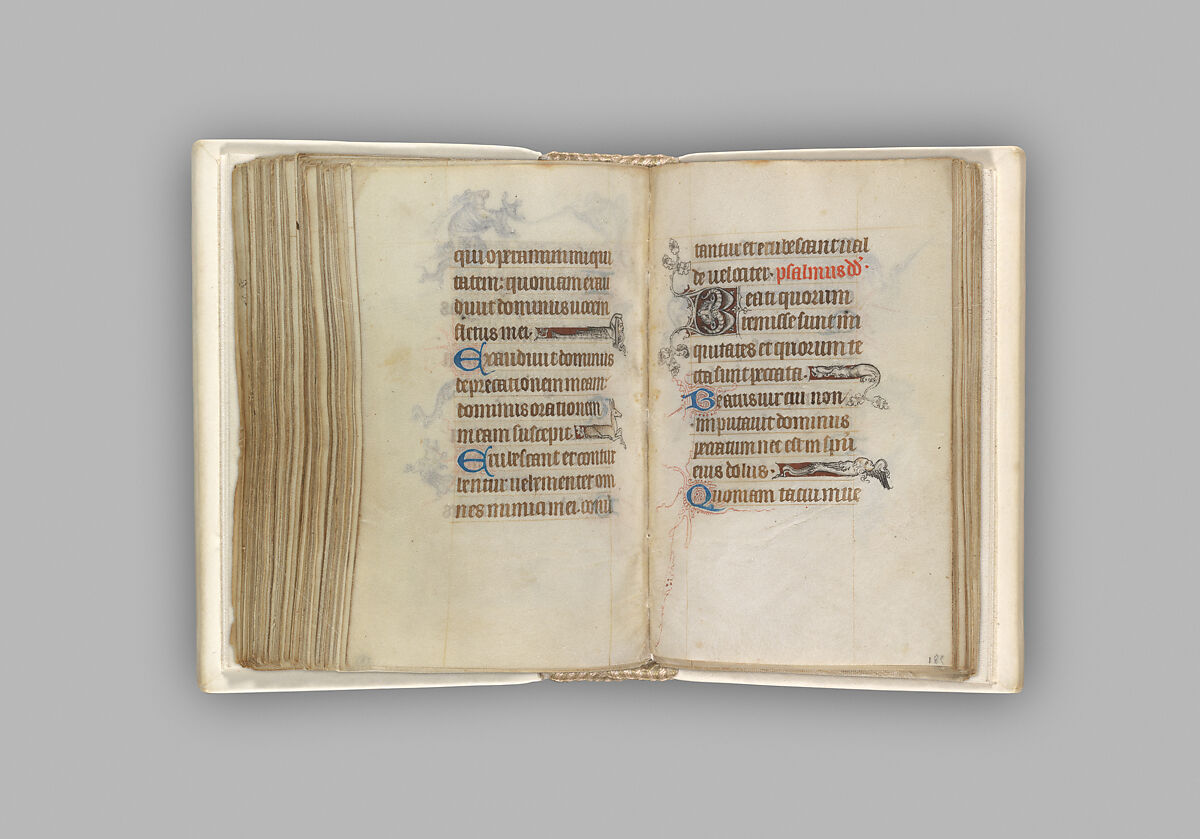 qui operamini iniqui
tatem: quoniam exau
diuit dominus uocem
fletus mei.
Exaudiuit dominus
deprecationem meam:
dominus orationem
meam suscepit.
Erubescant et contur
bentur uehementer om
nes inimici mei. conu
tantur et erubescant ual
de uelociter. psalmus dd'.
Beati quorum
remisse sunt ini
quitates et quorum te
cta sunt peccata.
Beatus uir cui non
imputauit dominus
peccatum nec est in spu
eius dolus.
Quoniam tacui inue
185